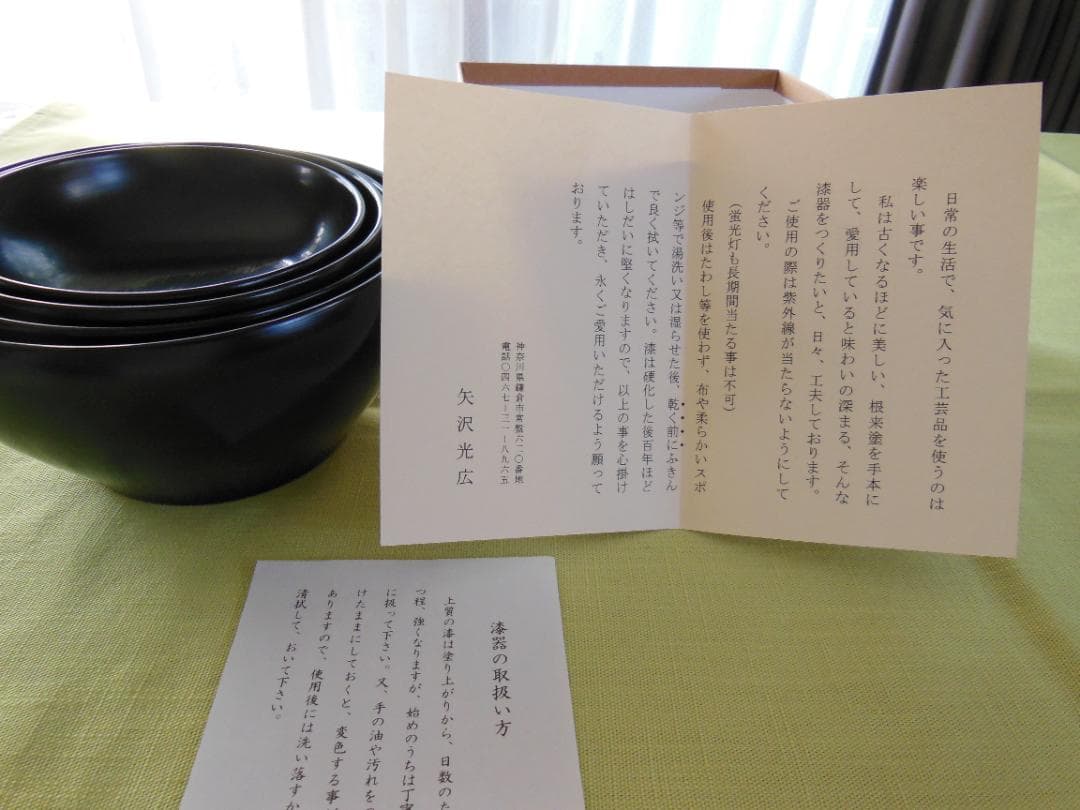 日常の生活で、気に入った工芸品を使うのは
楽しい事です。
私は古くなるほどに美しい、根来塗を手本に
して、愛用していると味わいの深まる、そんな
漆器をつくりたいと、日々、工夫しております。
ご使用の際は紫外線が当たらないようにして
ください。
(蛍光灯も長期間当たる事は不可)
使用後はたわし等を使わず、布や柔らかいスポ
ンジ等で湯洗い又は湿らせた後、乾く前にふきん
で良く拭いてください。漆は硬化した後百年ほど
はしだいに堅くなりますので、以上の事を心掛け
ていただき、永くご愛用いただけるよう願って
おります。
神奈川県鎌倉市常盤六二〇番地
電話〇四六七ー三一ー八九六五
矢沢光広
漆器の取扱い方
上質の漆は塗り上がりから、日数のた
つ程、強くなりますが、始めのうちは丁寧
に扱って下さい。又、手の油や汚れをの
けたままにしておくと、変色する事
ありますので、使用後には洗い落すか
清拭して、おいて下さい。